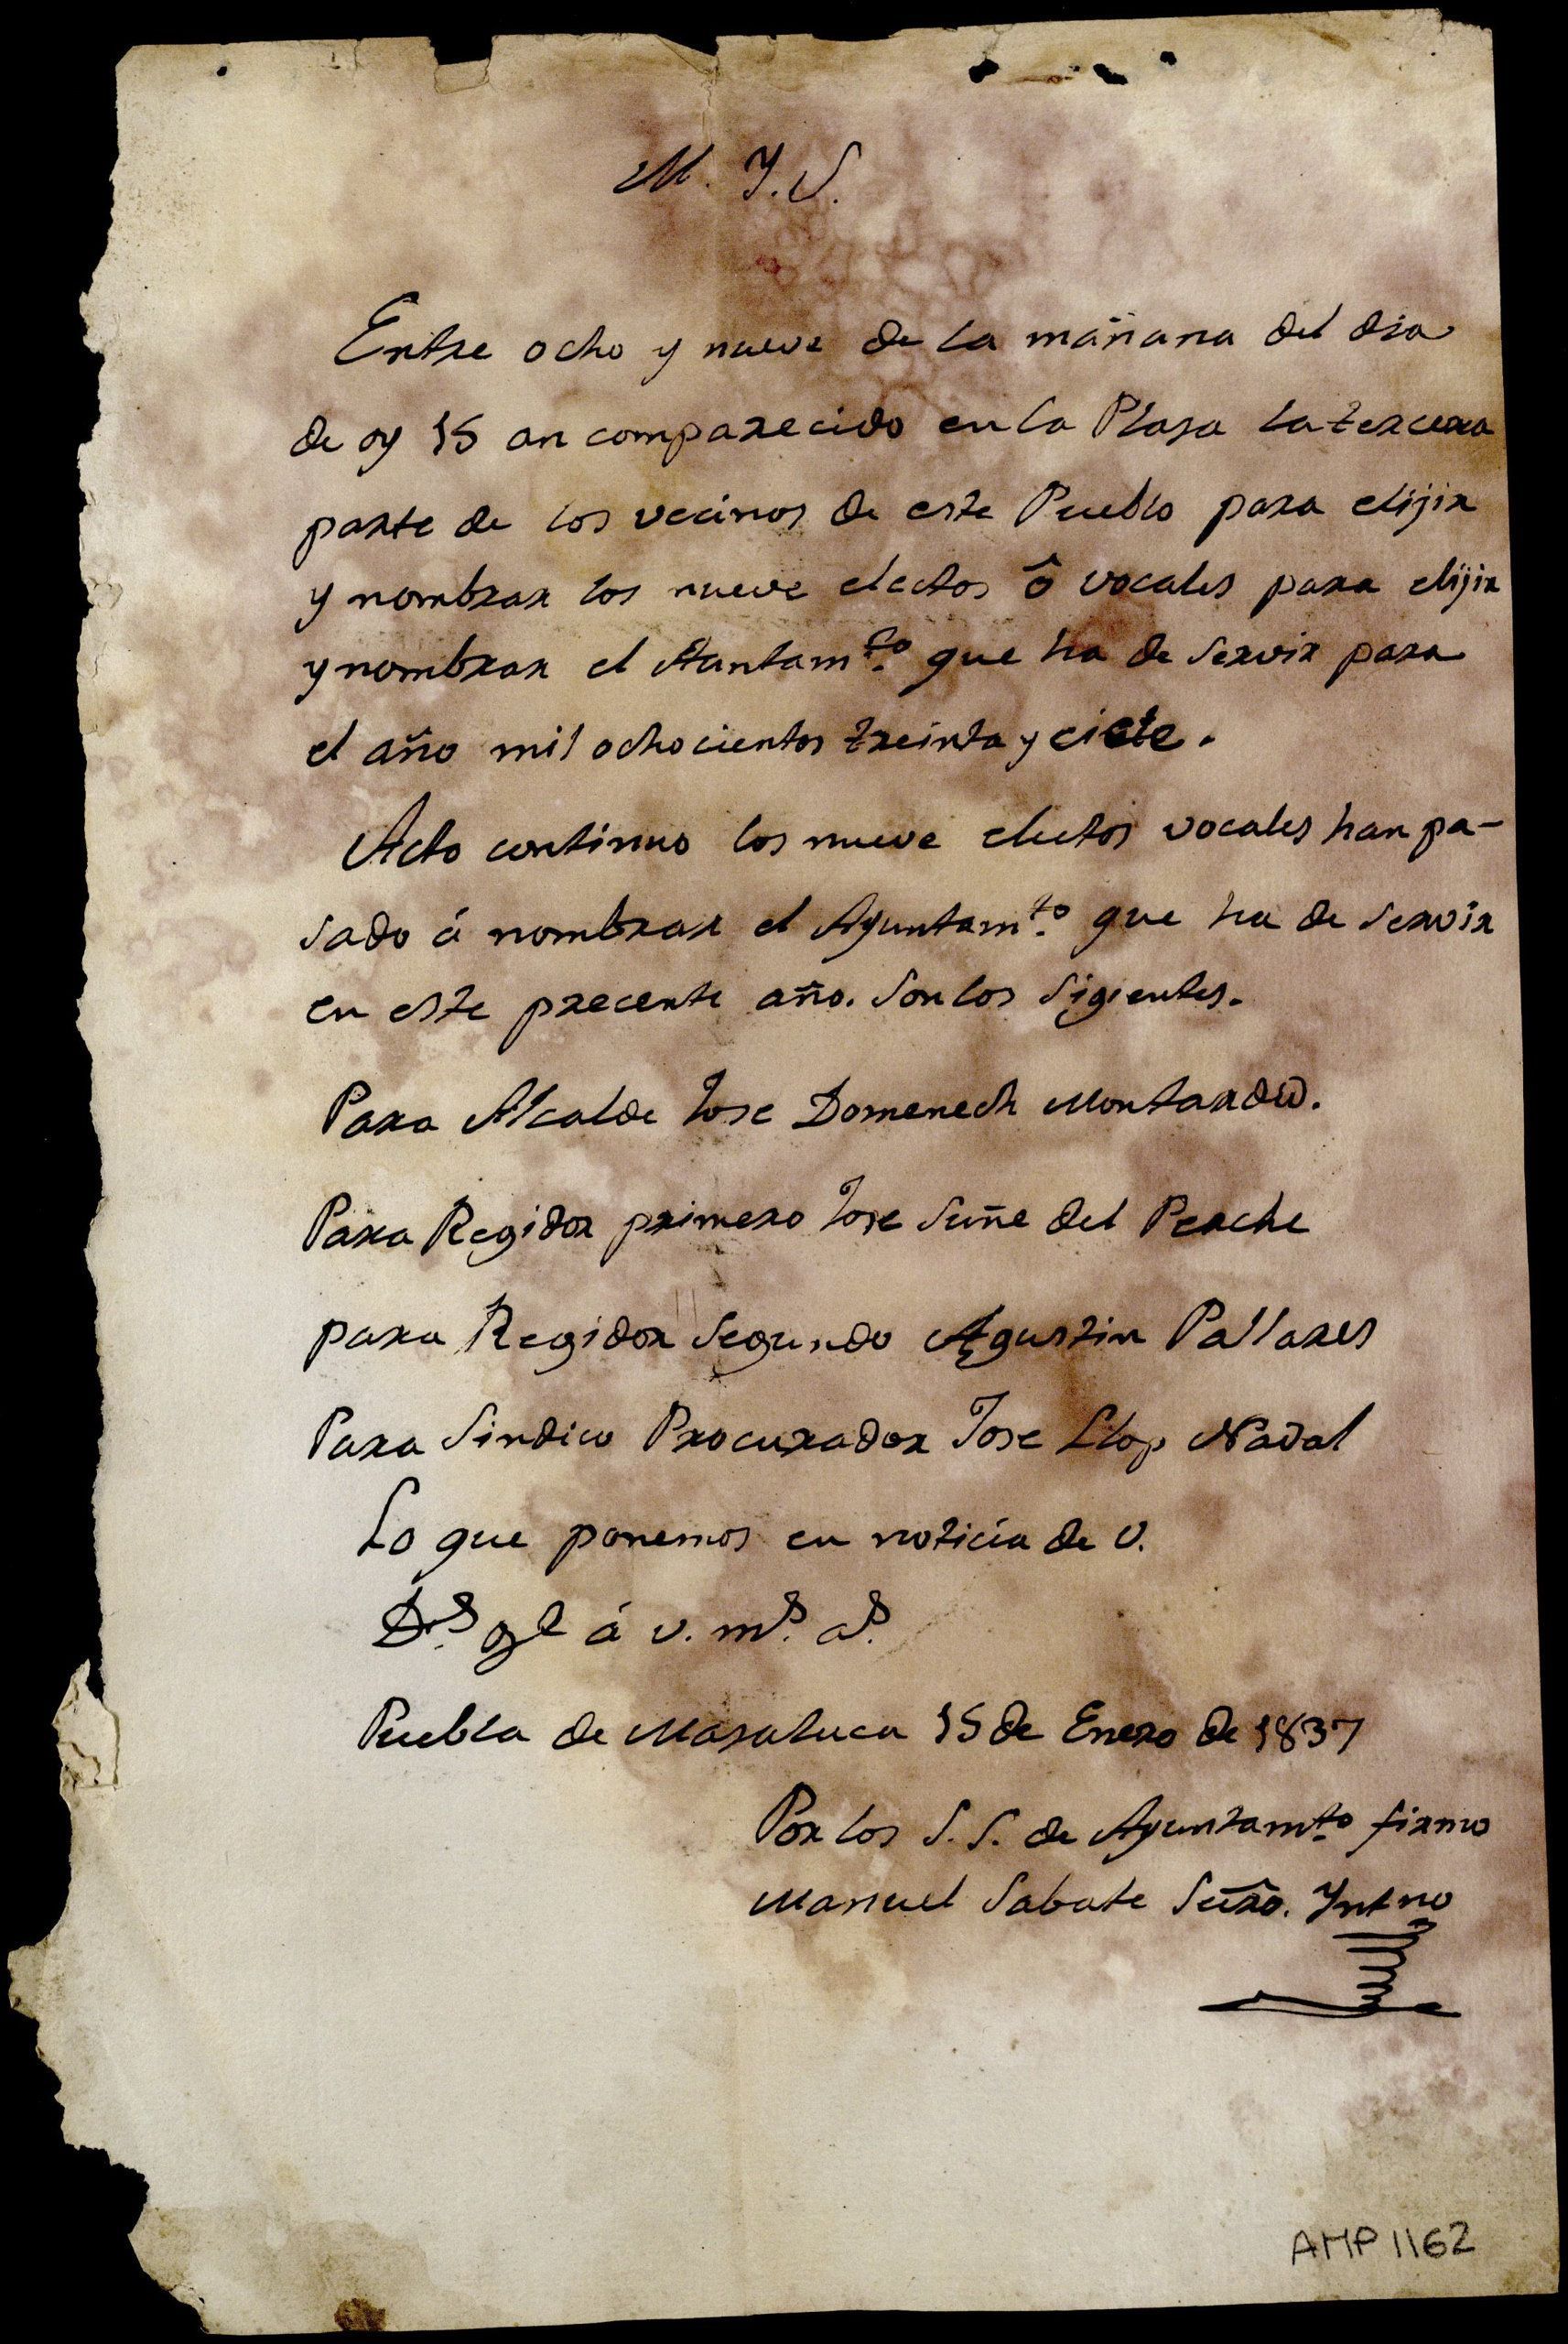 M. Y. S.
Entre ocho y nueve de la mañana del dia
de oy 15 an comparecido en la Plasa la tercera
parte de los vecinos de este Pueblo para elijir
y nombrar los nueve electos ô vocales para elijir
y nombrar el Aantam.to que ha de servir para
el año mil ochocientos treinta y ciete.
Acto continuo los nueve electos vocales han pa-
sado á nombrar el Ayuntam.to que ha de servir
en este precente año. Son los sigientes.
Para Alcalde Jose Domenech Montardid.
Para Regidor primero Jose Suñe del Perche
para Regidor segundo Agustin Pallares
Para Sindico Procurador Jose Llop Nadal
Lo que ponemos en noticia de V.
D.s gl á V. m.s a.s
Puebla de Masaluca 15 de Enero de 1837
Por los S. S. de Ayuntam.to firmo
Manuel Sabate Seûro. Yntno
AMP 1162